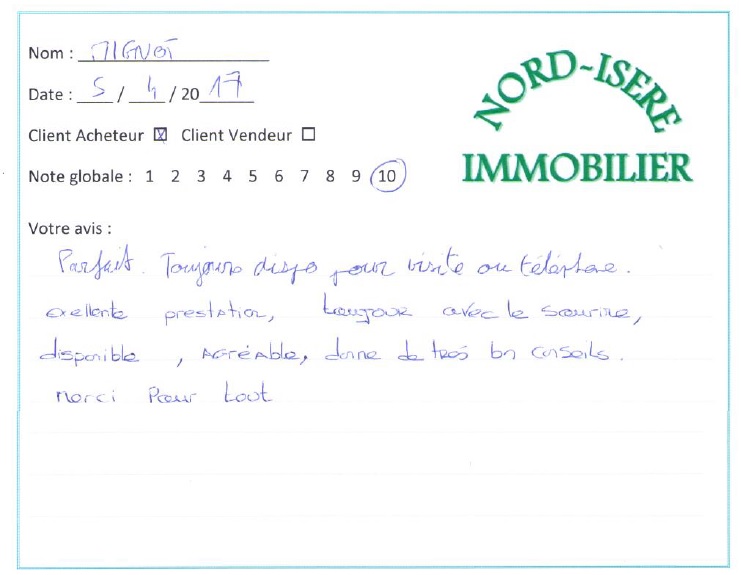 Nom : MIGNOT
Date : 5 / 4 / 2017
Client Acheteur ☒ Client Vendeur ☐
Note globale : 1 2 3 4 5 6 7 8 9 10
NORD-ISERE
IMMOBILIER
Votre avis :
Parfait. Toujours dispo pour visite ou téléphone.
exellente prestation, toujour avec le sourire,
disponible , AGréAble, donne de très bn conseils.
merci Pour tout